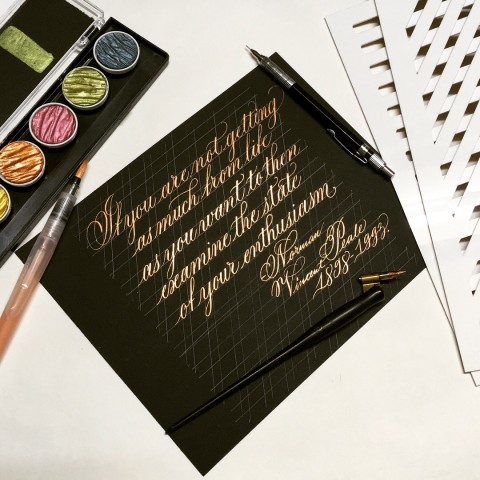 If you are not getting
as much from life
as you want to then
examine the state
of your enthusiasm
Norman
Vincent Peale
1898-1993.